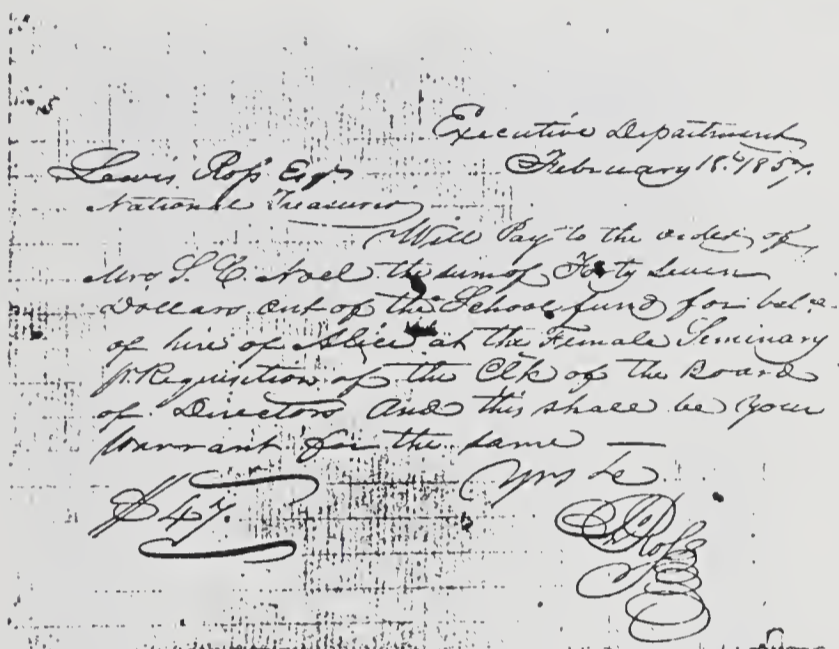 Executive Department
February 18th 1857.
Lewis Ross Esqr
National Treasurer
Will Pay to the order of
Mrs S. E. Noel the sum of Forty Seven
Dollars out of the School fund for balce
of hire of Alice at the Female Seminary
pr. Requisition of the Clk of the Board
of Directors And this shall be your
Warrant for the same —
$47. Yrs &c
Jn Ross